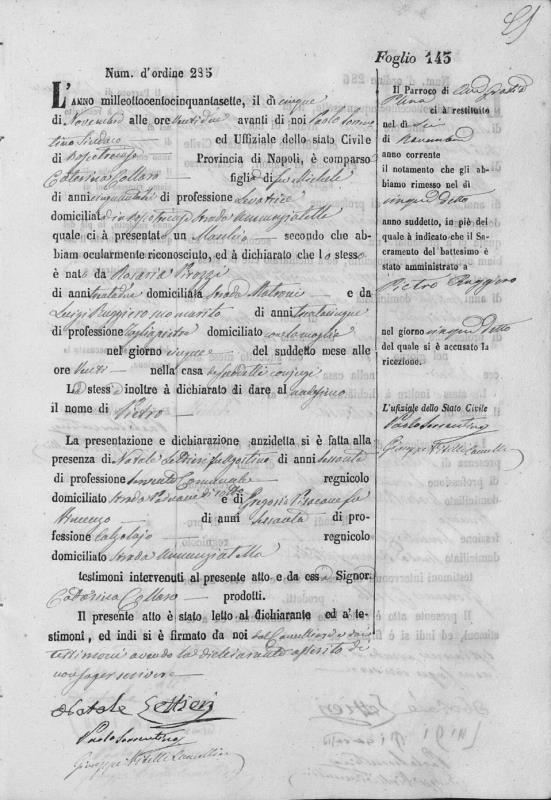 Foglio 145
Num. d'ordine 285
L'ANNO milleottocentocinquantasette, il dì cinque
di Novembre alle ore ventidue avanti di noi Paolo Sorren
tino Sindaco ed Uffiziale dello stato Civile
di Boscotrecase Provincia di Napoli, è comparso
Catarina Collaro figlia di fu Michele
di anni di professione Levatrice
domiciliata in Boscotrecase Strada Annunziatella
quale ci à presentato un Maschio secondo che ab-
biam ocularmente riconosciuto, ed à dichiarato che lo stesso
è nato da Maria
di anni trentadue domiciliata Strada Matroni e da
Luigi Ruggiero suo marito di anni trentacinque
di professione Tagliapietra domiciliato con la moglie
nel giorno cinque del suddetto mese alle
ore venti nella casa de' suddetti conjugi
La stessa inoltre à dichiarato di dare al medesimo
il nome di Pietro
La presentazione e dichiarazione anzidetta si è fatta alla
presenza di Natale Settieri fu Agostino di anni sessanta
di professione Servente Comunale regnicolo
domiciliato Strada e di Gregorio fu
Vincenzo di anni sessanta di pro-
fessione Calzolajo regnicolo
domiciliato Strada Annunziatella
testimoni intervenuti al presente atto e da essa Signor
Catarina Collaro prodotti.
Il presente atto è stato letto al dichiarante ed a' te-
stimoni, ed indi si è firmato da noi dal Cancelliere e dai
testimoni avendo la dichiarante asserito di
non saper scrivere
Natale Settieri
Paolo Sorrentino
Giuseppe Vitelli Cancelliere
Il Parroco di
ci à restituito
nel dì Sei
di Novembre
anno corrente
il notamento che gli ab-
biamo rimesso nel dì
cinque detto
anno suddetto, in piè del
quale à indicato che il Sa-
cramento del battesimo è
stato amministrato a
Pietro Ruggiero
nel giorno cinque detto
del quale si è accusato la
ricezione.
L'ufiziale dello Stato Civile
Paolo Sorrentino
Giuseppe Vitelli Cancelliere